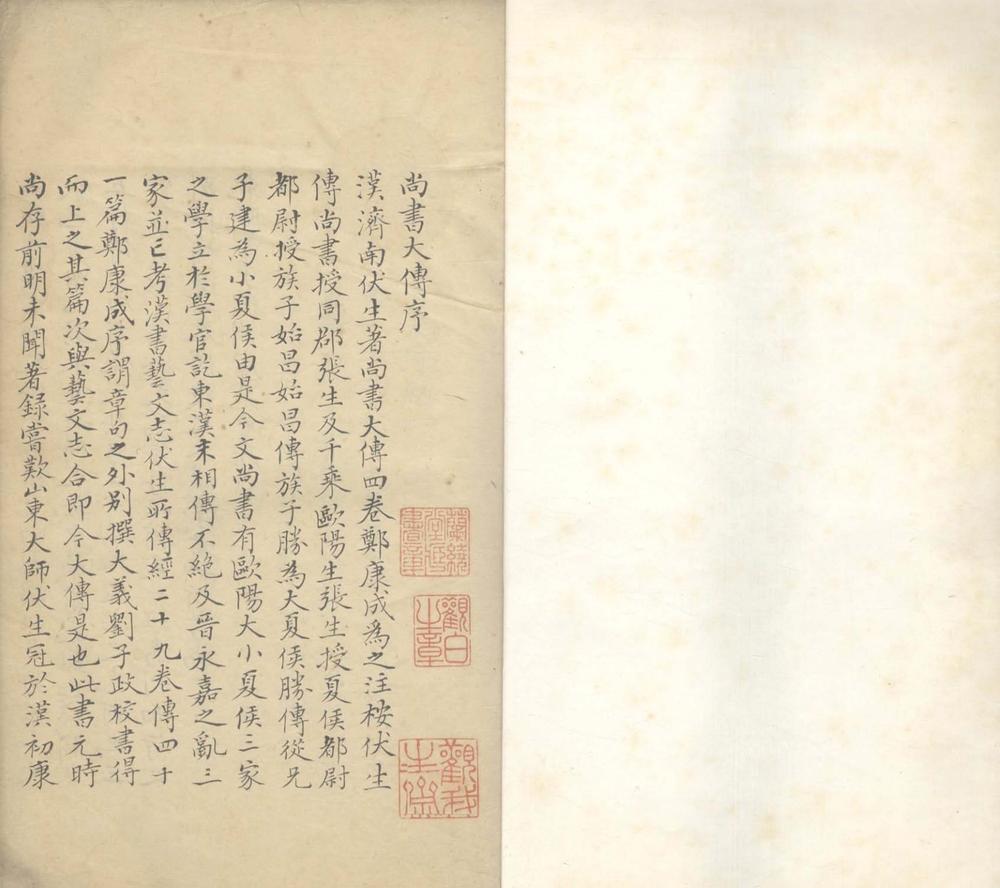 尚書大傳序
漢濟南伏生著尚書大傳四卷鄭康成為之注桉伏生
傳尚書授同郡張生及千乘歐陽生張生授夏侯都尉
都尉授族子始昌始昌傳族子勝為大夏侯勝傳從兄
子建為小夏侯由是今文尚書有歐陽大小夏侯三家
之學立於學官訖東漢末相傳不絕及晉永嘉之亂三
家並亡考漢書藝文志伏生所傳經二十九卷傳四十
一篇鄭康成序謂章句之外別撰大義劉子政校書得
而上之其篇次與藝文志合即今大傳是也此書元時
尚存前明未聞著錄嘗歎山東大師伏生冠於漢初康
觀白
之章
觀我
生齋